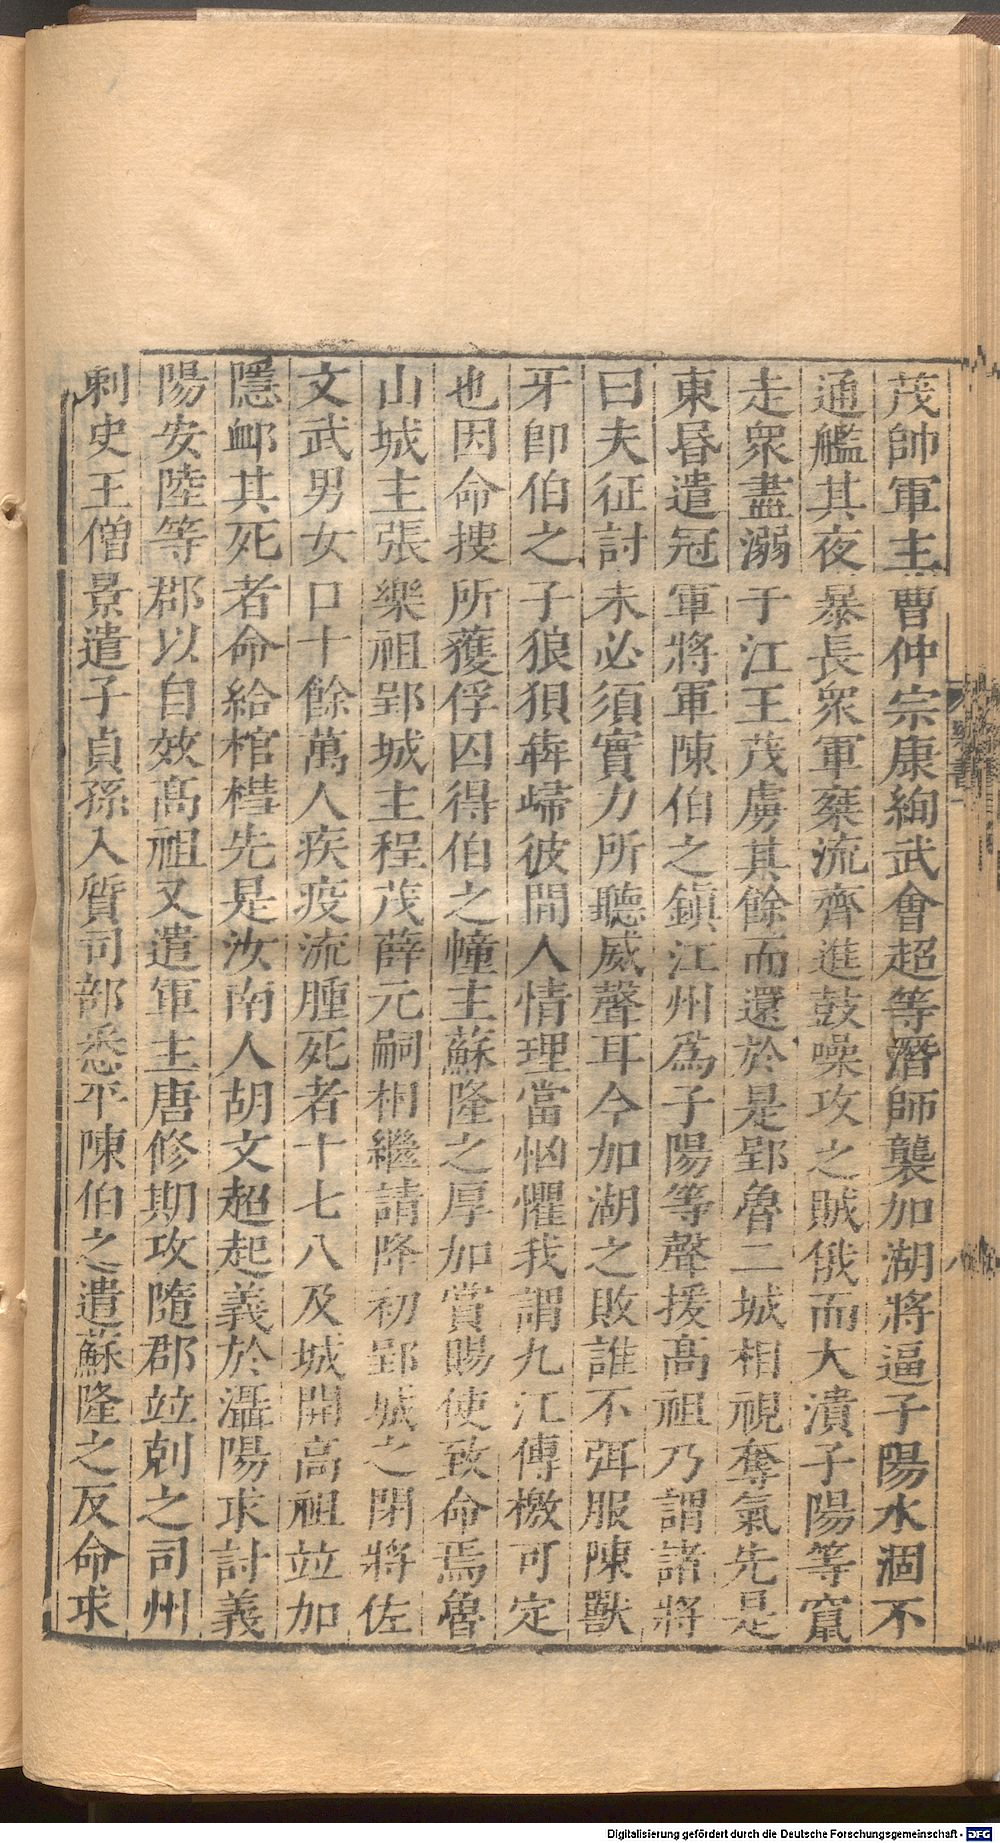 茂帥軍主曹仲宗康絢武會超等潛師襲加湖將逼子陽水涸不
通艦其夜暴長衆軍乘流齊進鼓噪攻之賊俄而大潰子陽等竄
走衆盡溺于江王茂虜其餘而還於是郢魯二城相視奪氣先是
東昬遣冠軍將軍陳伯之鎮江州爲子陽等聲援高祖乃謂諸將
曰夫征討未必須實力所聽威聲耳今加湖之敗誰不弭服陳獸
牙卽伯之子狼狽犇歸彼間人情理當恟懼我謂九江傳檄可定
也因命搜所獲俘囚得伯之幢主蘇隆之厚加賞賜使致命焉魯
山城主張樂祖郢城主程茂薛元嗣相繼請降初郢城之閉將佐
文武男女口十餘萬人疾疫流腫死者十七八及城開高祖竝加
隱卹其死者命給棺槥先是汝南人胡文超起義於灄陽求討義
陽安陸等郡以自效高祖又遣軍主唐修期攻隨郡竝剋之司州
刺史王僧景遣子貞孫入質司部悉平陳伯之遣蘇隆之反命求
梁書一
八
Digitalisierung gefördert durch die Deutsche Forschungsgemeinschaft - DFG